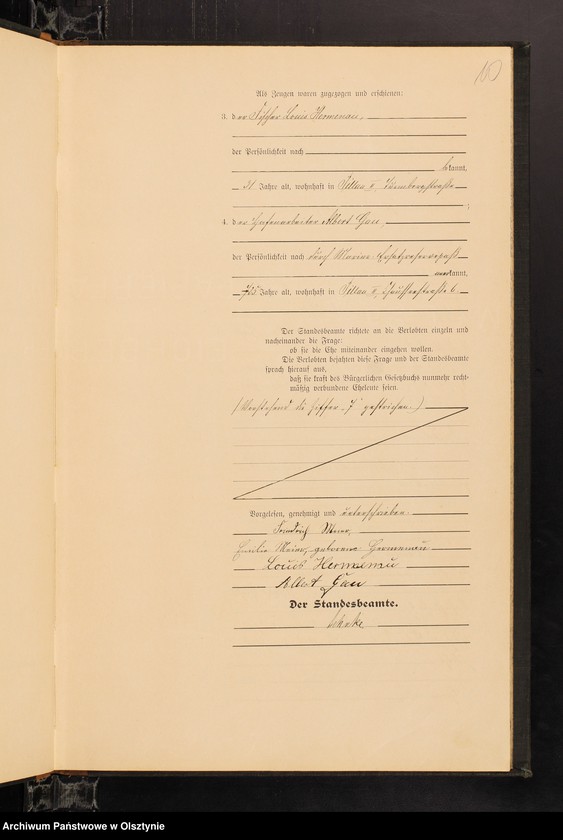 10
Als Zeugen waren zugezogen und erschienen:
3. der Fischer Louis Hermenau,
der Persönlichkeit nach
bekannt,
31 Jahre alt, wohnhaft in Pillau II,
;
4. der Hafenarbeiter Albert Gau,
der Persönlichkeit nach durch Marine-Ersatzreservepaß
anerkannt,
25 Jahre alt, wohnhaft in Pillau II, Chausseestraße 6.
Der Standesbeamte richtete an die Verlobten einzeln und
nacheinander die Frage:
ob sie die Ehe miteinander eingehen wollen.
Die Verlobten bejahten diese Frage und der Standesbeamte
sprach hierauf aus,
daß sie kraft des Bürgerlichen Gesetzbuchs nunmehr recht-
mäßig verbundene Eheleute seien.
(Vorstehend die Ziffer „7“ gestrichen.)
Vorgelesen, genehmigt und unterschrieben.
Friedrich
Emilie Meier, geborene Hermenau
Louis Hermenau
Albert Gau
Der Standesbeamte.
Archiwum Państwowe w Olsztynie